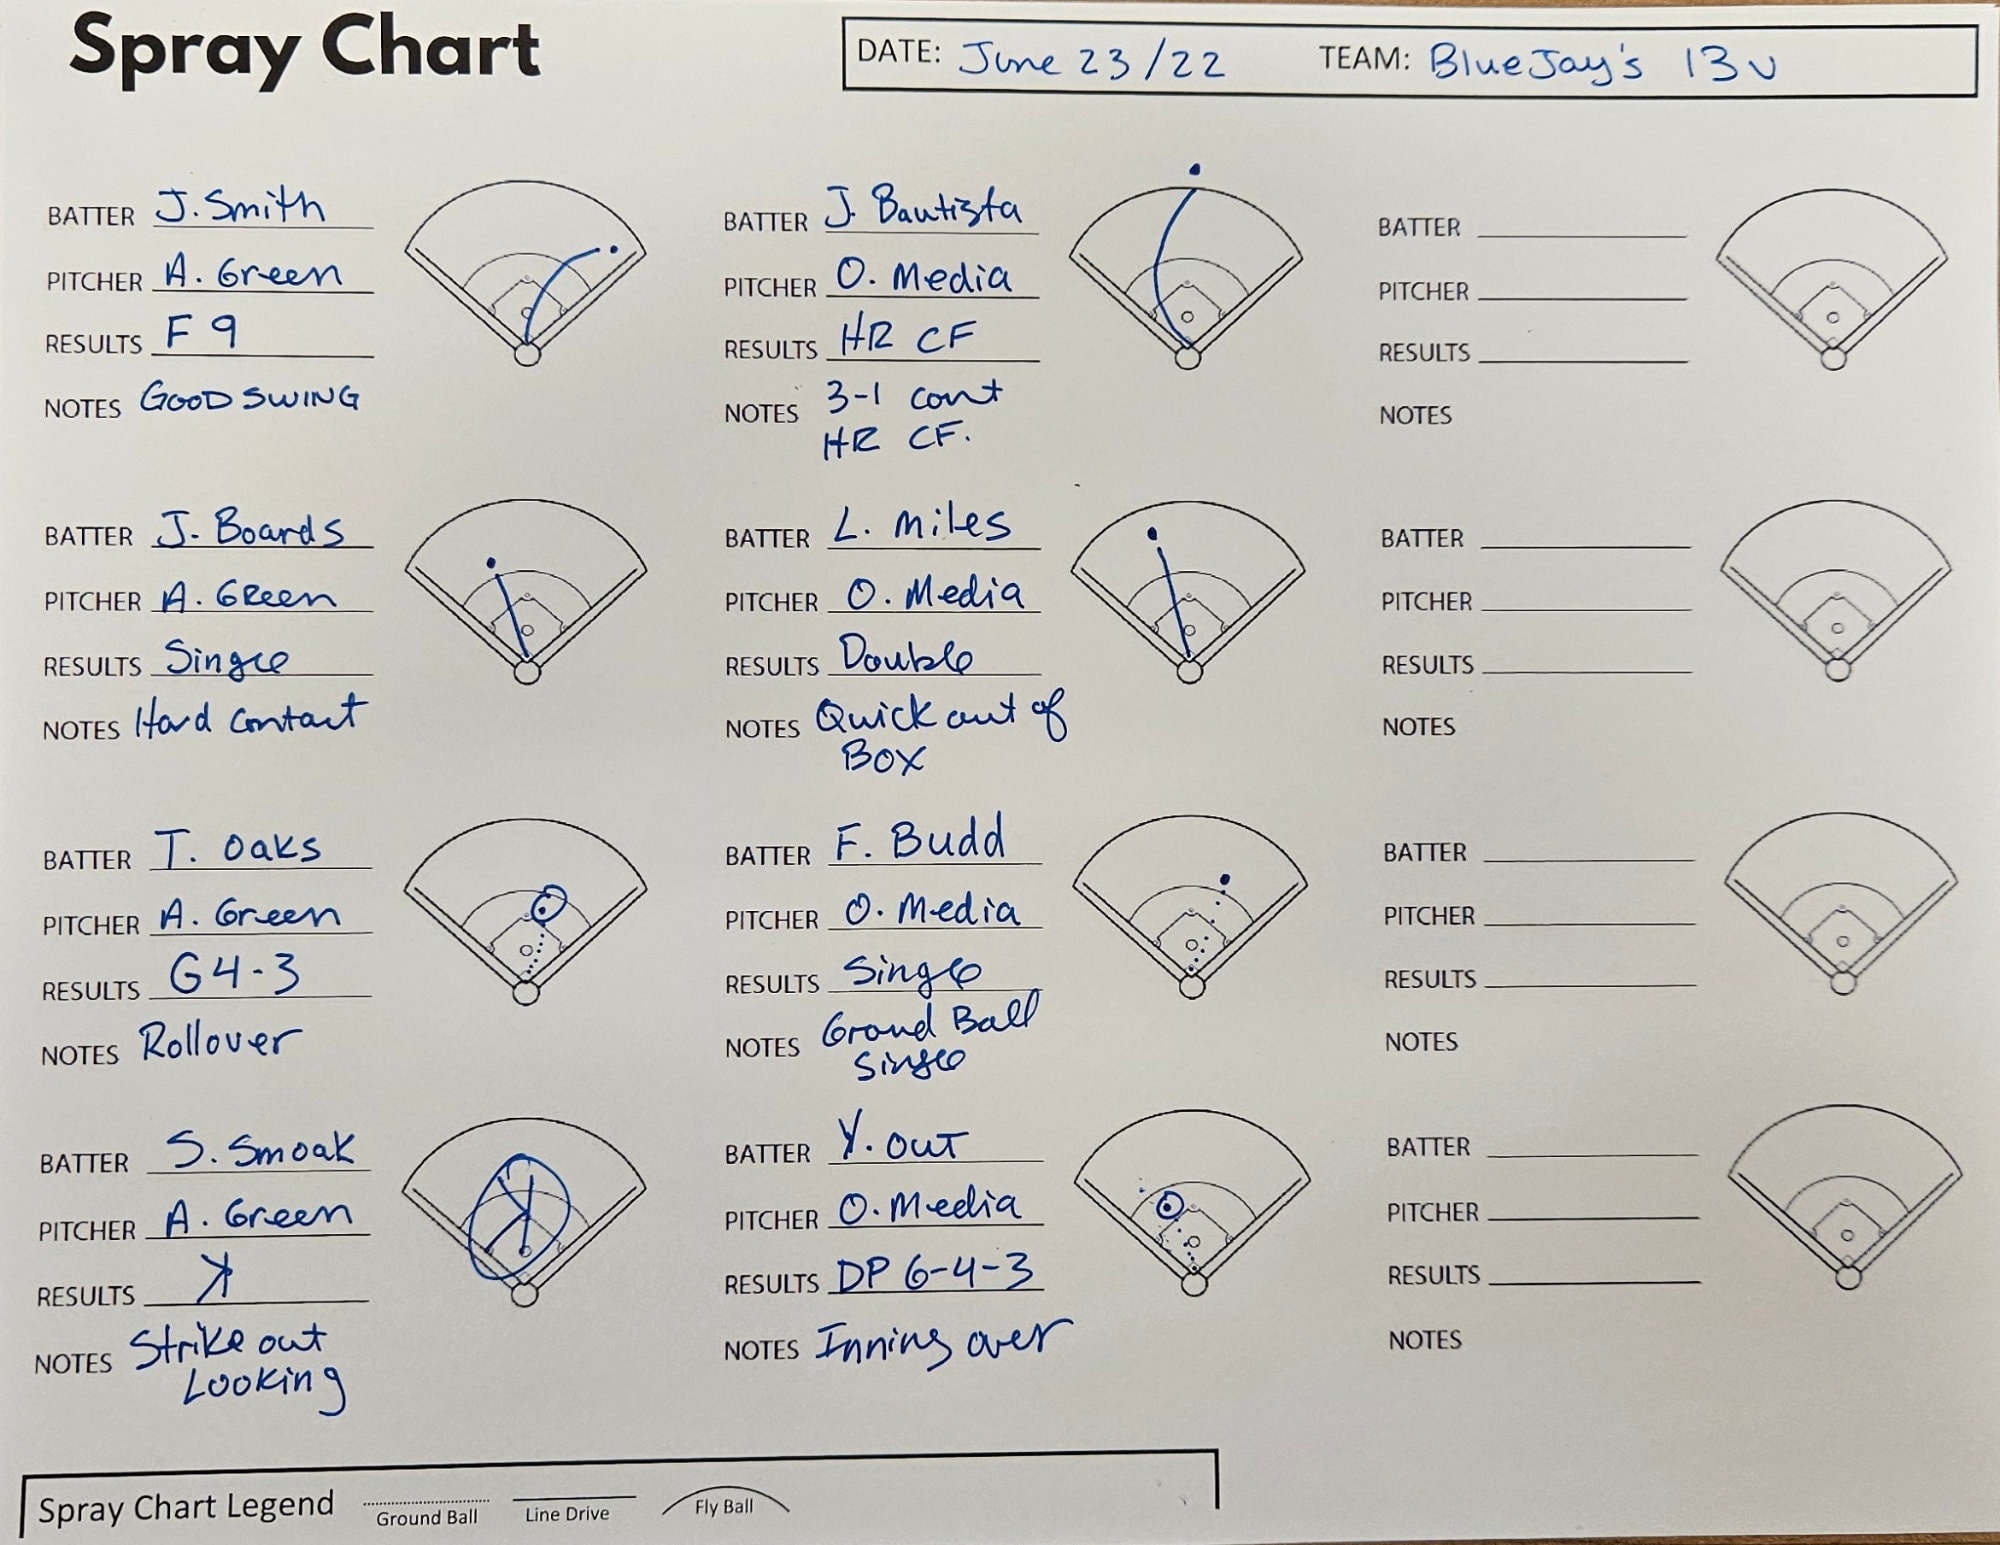 Spray Chart
DATE: June 23/22 TEAM: BlueJay's 13u
BATTER J. Smith
PITCHER A. Green
RESULTS F 9
NOTES GOOD SWING
BATTER J. Boards
PITCHER A. Green
RESULTS Single
NOTES Hard Contact
BATTER T. Oaks
PITCHER A. Green
RESULTS G 4-3
NOTES Rollover
BATTER S. Smoak
PITCHER A. Green
RESULTS ꓘ
NOTES Strike out
Looking
BATTER J. Bautista
PITCHER O. Media
RESULTS HR CF
NOTES 3-1 count
HR CF.
BATTER L. Miles
PITCHER O. Media
RESULTS Double
NOTES Quick out of
Box
BATTER F. Budd
PITCHER O. Media
RESULTS Single
NOTES Ground Ball
Single
BATTER Y. OUT
PITCHER O. Media
RESULTS DP 6-4-3
NOTES Inning over
BATTER
PITCHER
RESULTS
NOTES
BATTER
PITCHER
RESULTS
NOTES
BATTER
PITCHER
RESULTS
NOTES
BATTER
PITCHER
RESULTS
NOTES
Spray Chart Legend Ground Ball Line Drive Fly Ball